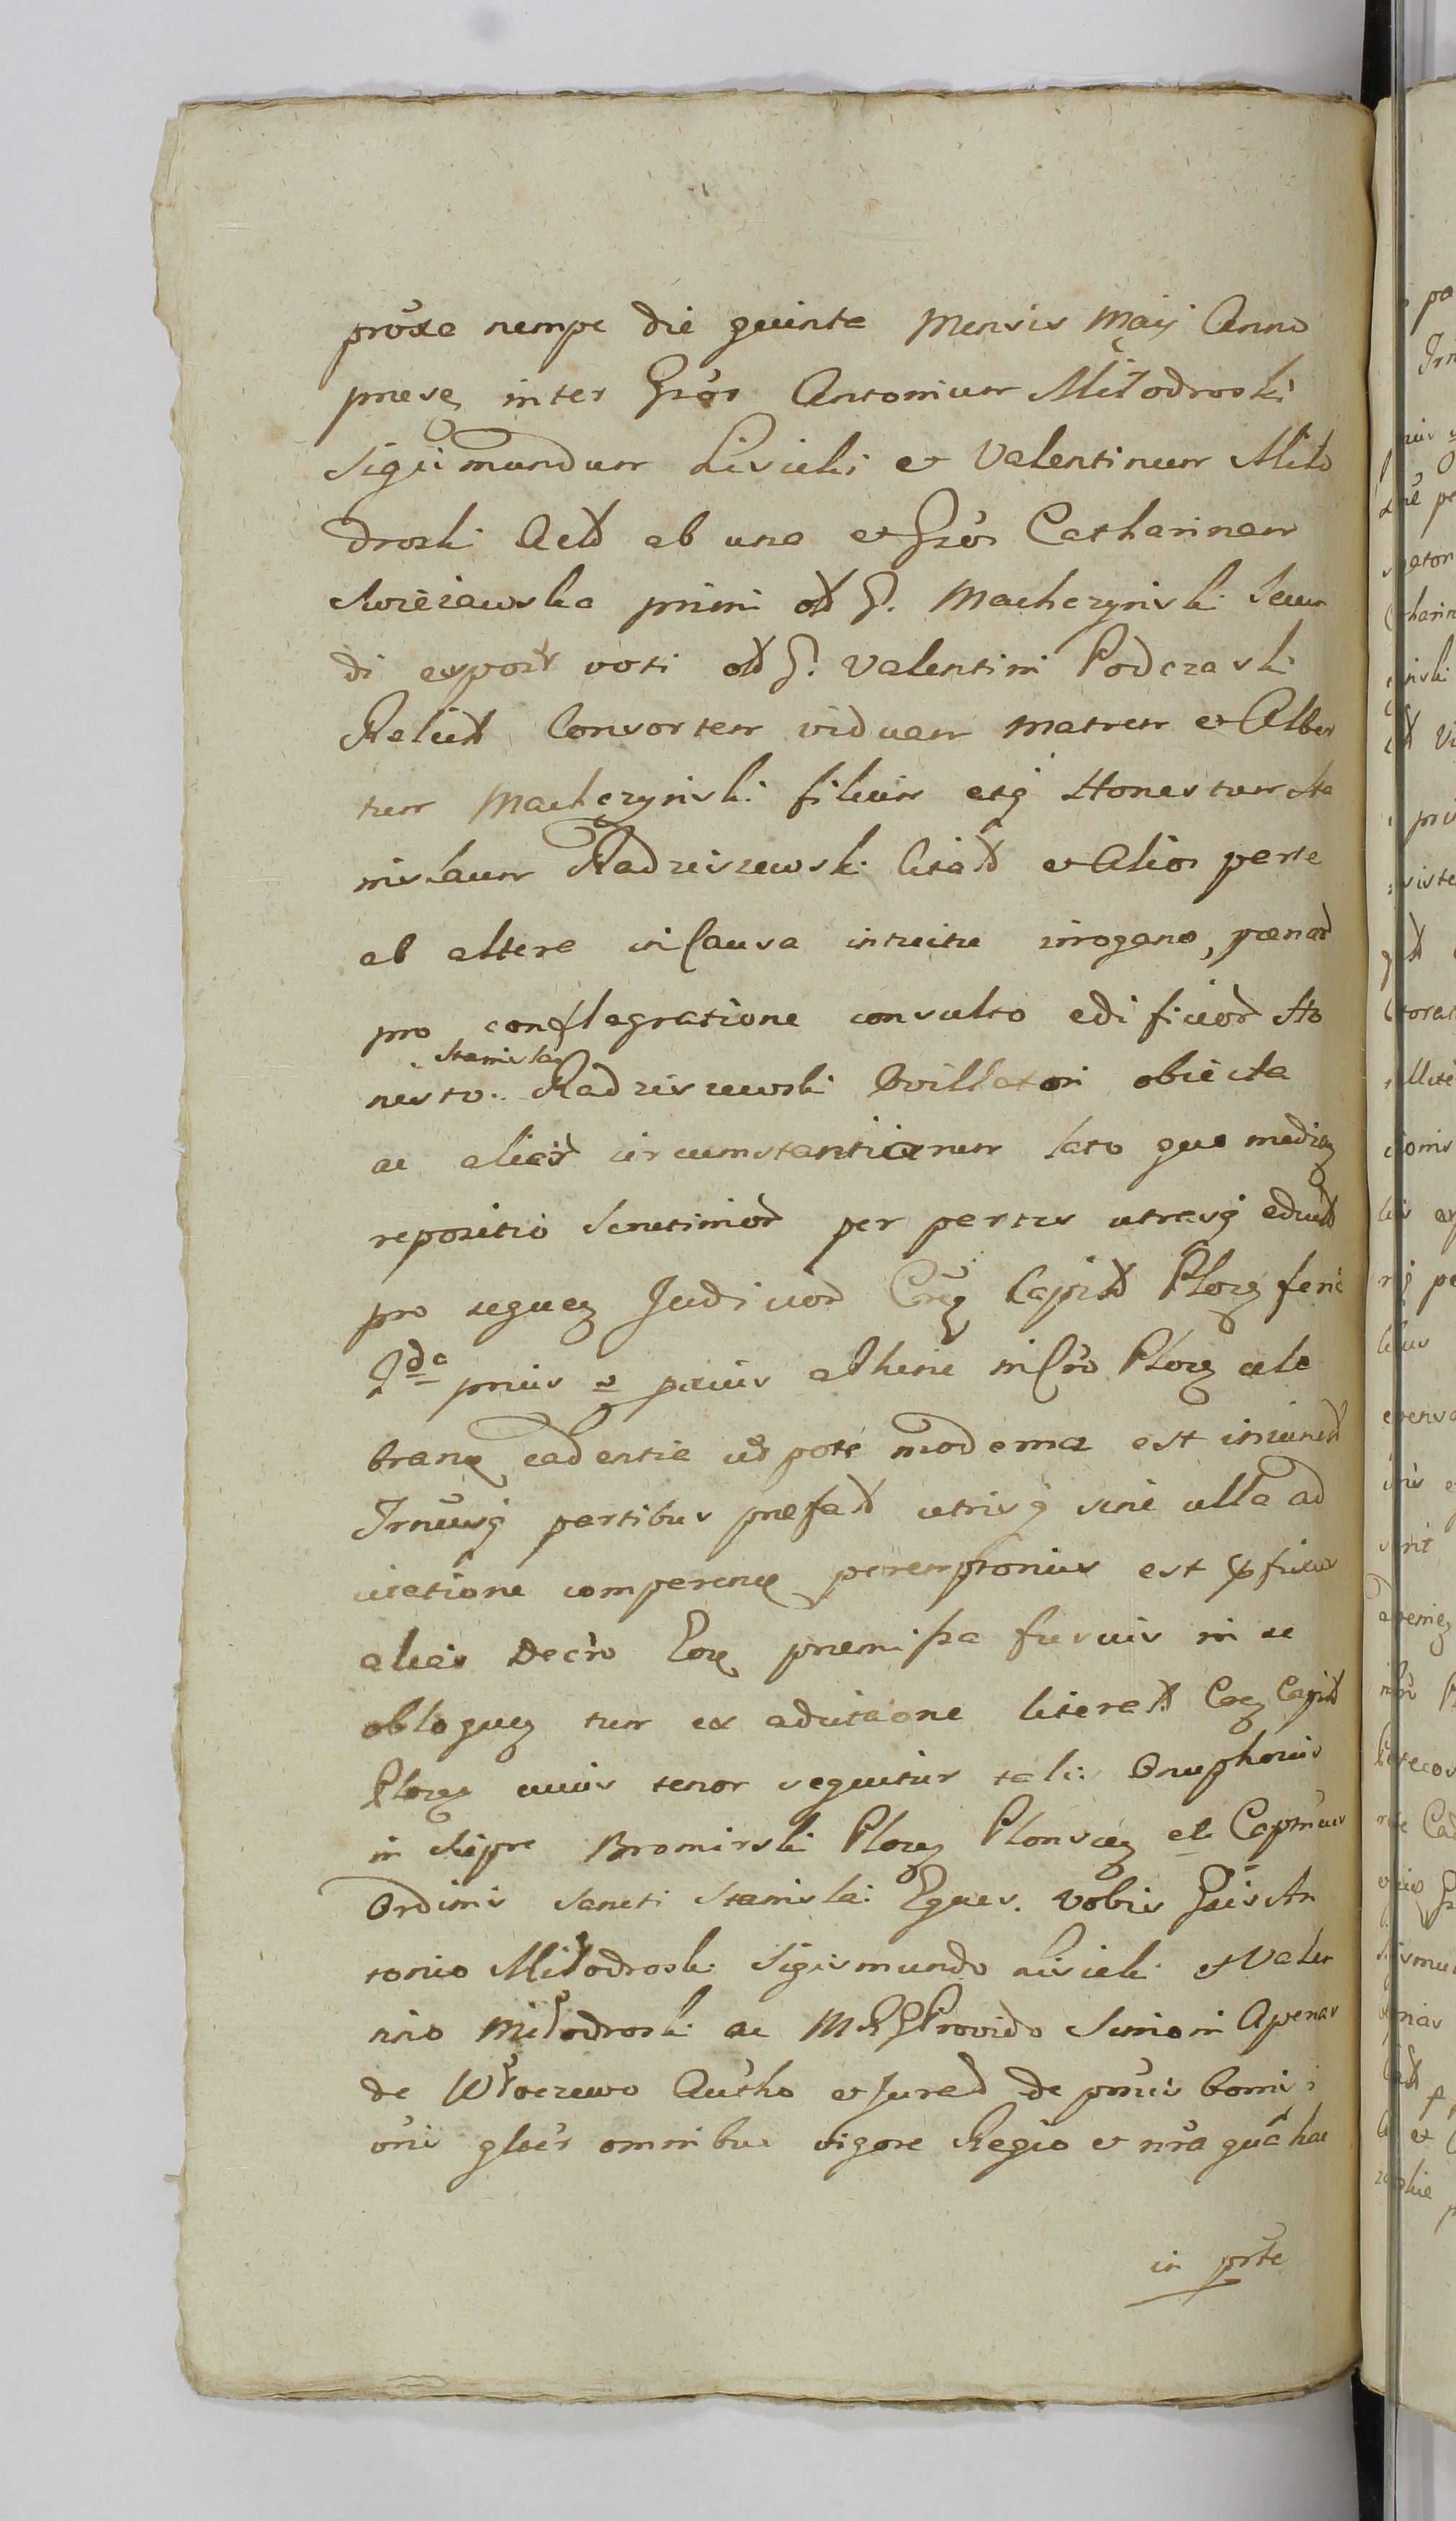 proxe nempe die quinta Mensis Maij Anno
praese inter Gsos Antonium Miłodroski
Sigismundum Lisicki et Valentinum Miło
droski Act ab una et Gsos Catharinam
Skwieżawska primi olt G. Machczynski Secun
di expost voti olt G. Valentini Podczaski
Relict Consortem viduam matrem et Alber
tum Machczynski filium atq Honestum Sta
nislaum Radziszewski Citat et Alios parte
ab altera in Causa intuitu irrogand, poenar
pro conflagratione consulto edificior Ho
nesto Stanislao Radziszewski Ovillatori obiecta
ac aliar circumstantiarum lato que media
repositio Scrutinior per partes utrasq educt
pro sequen Judicior Capit Ploc feri
2da prius et pivis abhinc in Cro Ploc cele
bran cadentia ut pote moderna est iniunct
Trnusq partibus praefat utrisq sine ulla ad
citatione comparen peremptorius est pfixus
alias Decro Eor praemissa fusius in se
obloquen tum ex adcitatione literat Capit
Ploc cuius tenor sequitur talis Onuphrius
in Skepre Bromirski Ploc Plonscen et Capitneus
Ordinis Sancti Stanislai Eques. Vobis Gsis An
tonio Miłodroski Sigismundo Lisicki et Valen
tino Miłodroski ac Provido Simoni Apenas
de Włoczewo Autho et Jurat de psonis bonis
vris glbus omnibus vigore Regio et nra qua hac
in prte